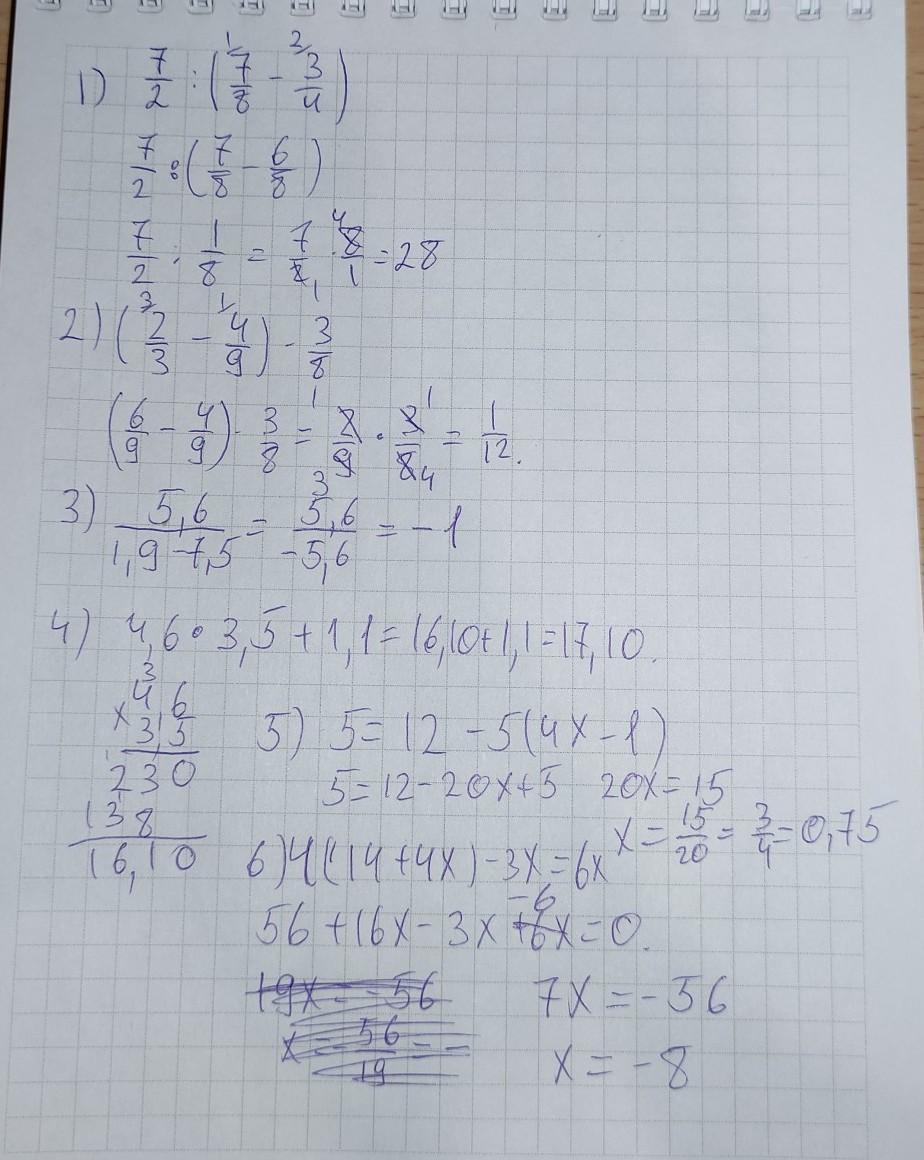 1) 7/2 : (7/8 - 3/4)
7/2 : (7/8 - 6/8)
7/2 : 1/8 = 7/2 · 8/1 = 28
2) (2/3 - 4/9) · 3/8
(6/9 - 4/9) · 3/8 = 2/9 · 3/8 = 1/12.
3) 5,6/(1,9-7,5) = 5,6/-5,6 = -1
4) 4,6 · 3,5 + 1,1 = 16,10+1,1 = 17,10.
3
4 6
× 3,5
230
138
16,10
5) 5 = 12 - 5(4x - 1)
5 = 12 - 20x + 5 20x = 15
x = 15/20 = 3/4 = 0,75
6) 4(14 + 4x) - 3x = 6x
56 + 16x - 3x -6x = 0.
7x = -56
x = -8